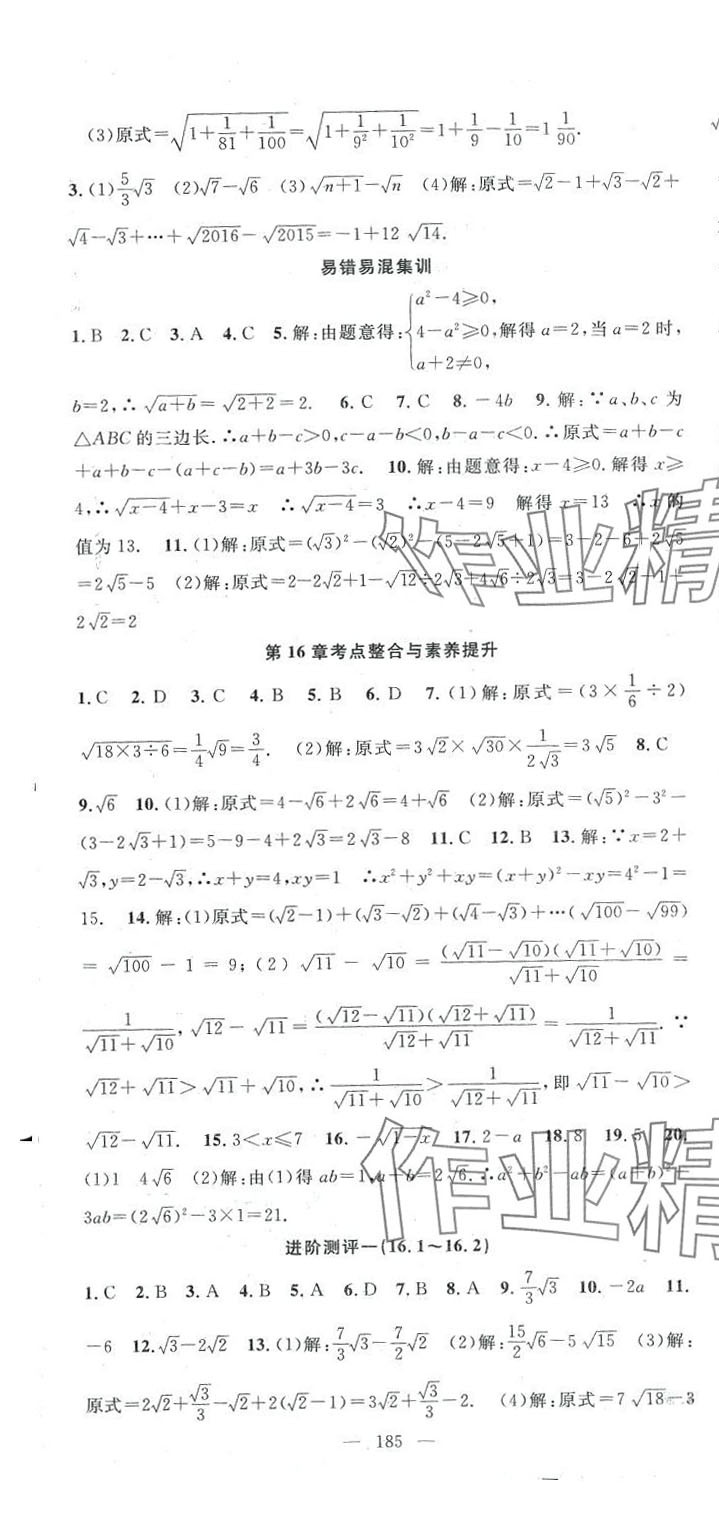 (3)原式=√(1+1/81+1/100)=√(1+1/9²+1/10²)=1+1/9-1/10=1 1/90.
3.(1)5/3√3 (2)√7-√6 (3)√(n+1)-√n (4)解:原式=√2-1+√3-√2+
√4-√3+…+√2016-√2015=-1+12 √14.
易错易混集训
1.B 2.C 3.A 4.C 5.解:由题意得:{a²-4≥0, 4-a²≥0, a+2≠0, 解得a=2,当a=2时,
b=2,∴√(a+b)=√(2+2)=2. 6.C 7.C 8.-4b 9.解:∵a、b、c为
△ABC的三边长.∴a+b-c>0,c-a-b<0,b-a-c<0.∴原式=a+b-c
+a+b-c-(a+c-b)=a+3b-3c. 10.解:由题意得:x-4≥0.解得x≥
4,∴√(x-4)+x-3=x ∴√(x-4)=3 ∴x-4=9 解得x=13 ∴x的
值为13. 11.(1)解:原式=(√3)²-(√2)²-(5-2√5+1)=3-2-6+2√5
=2√5-5 (2)解:原式=2-2√2+1-√12÷2√3+4√6÷2√3=3-2√2-1+
2√2=2
第16章考点整合与素养提升
1.C 2.D 3.C 4.B 5.B 6.D 7.(1)解:原式=(3×1/6÷2)
√(18×3÷6)=1/4√9=3/4. (2)解:原式=3√2×√30×1/(2√3)=3√5 8.C
9.√6 10.(1)解:原式=4-√6+2√6=4+√6 (2)解:原式=(√5)²-3²-
(3-2√3+1)=5-9-4+2√3=2√3-8 11.C 12.B 13.解:∵x=2+
√3,y=2-√3,∴x+y=4,xy=1 ∴x²+y²+xy=(x+y)²-xy=4²-1=
15. 14.解:(1)原式=(√2-1)+(√3-√2)+(√4-√3)+…(√100-√99)
=√100-1=9;(2)√11-√10=(√11-√10)(√11+√10)/(√11+√10)=
1/(√11+√10),√12-√11=(√12-√11)(√12+√11)/(√12+√11)=1/(√12+√11).∵
√12+√11>√11+√10,∴1/(√11+√10)>1/(√12+√11),即√11-√10>
√12-√11. 15.3<x≤7 16.-√(1-x) 17.2-a 18.8 19.5 20.
(1)1 4√6 (2)解:由(1)得ab=1,a+b=2√6.∴a²+b²-ab=(a+b)²-
3ab=(2√6)²-3×1=21.
进阶测评一(16.1~16.2)
1.C 2.B 3.A 4.B 5.A 6.D 7.B 8.A 9.7/3√3 10.-2a 11.
-6 12.√3-2√2 13.(1)解:7/3√3-7/2√2 (2)解:15/2√6-5√15 (3)解:
原式=2√2+√3/3-√2+2(√2-1)=3√2+√3/3-2. (4)解:原式=7√18-3
— 185 —
作业精
作业精